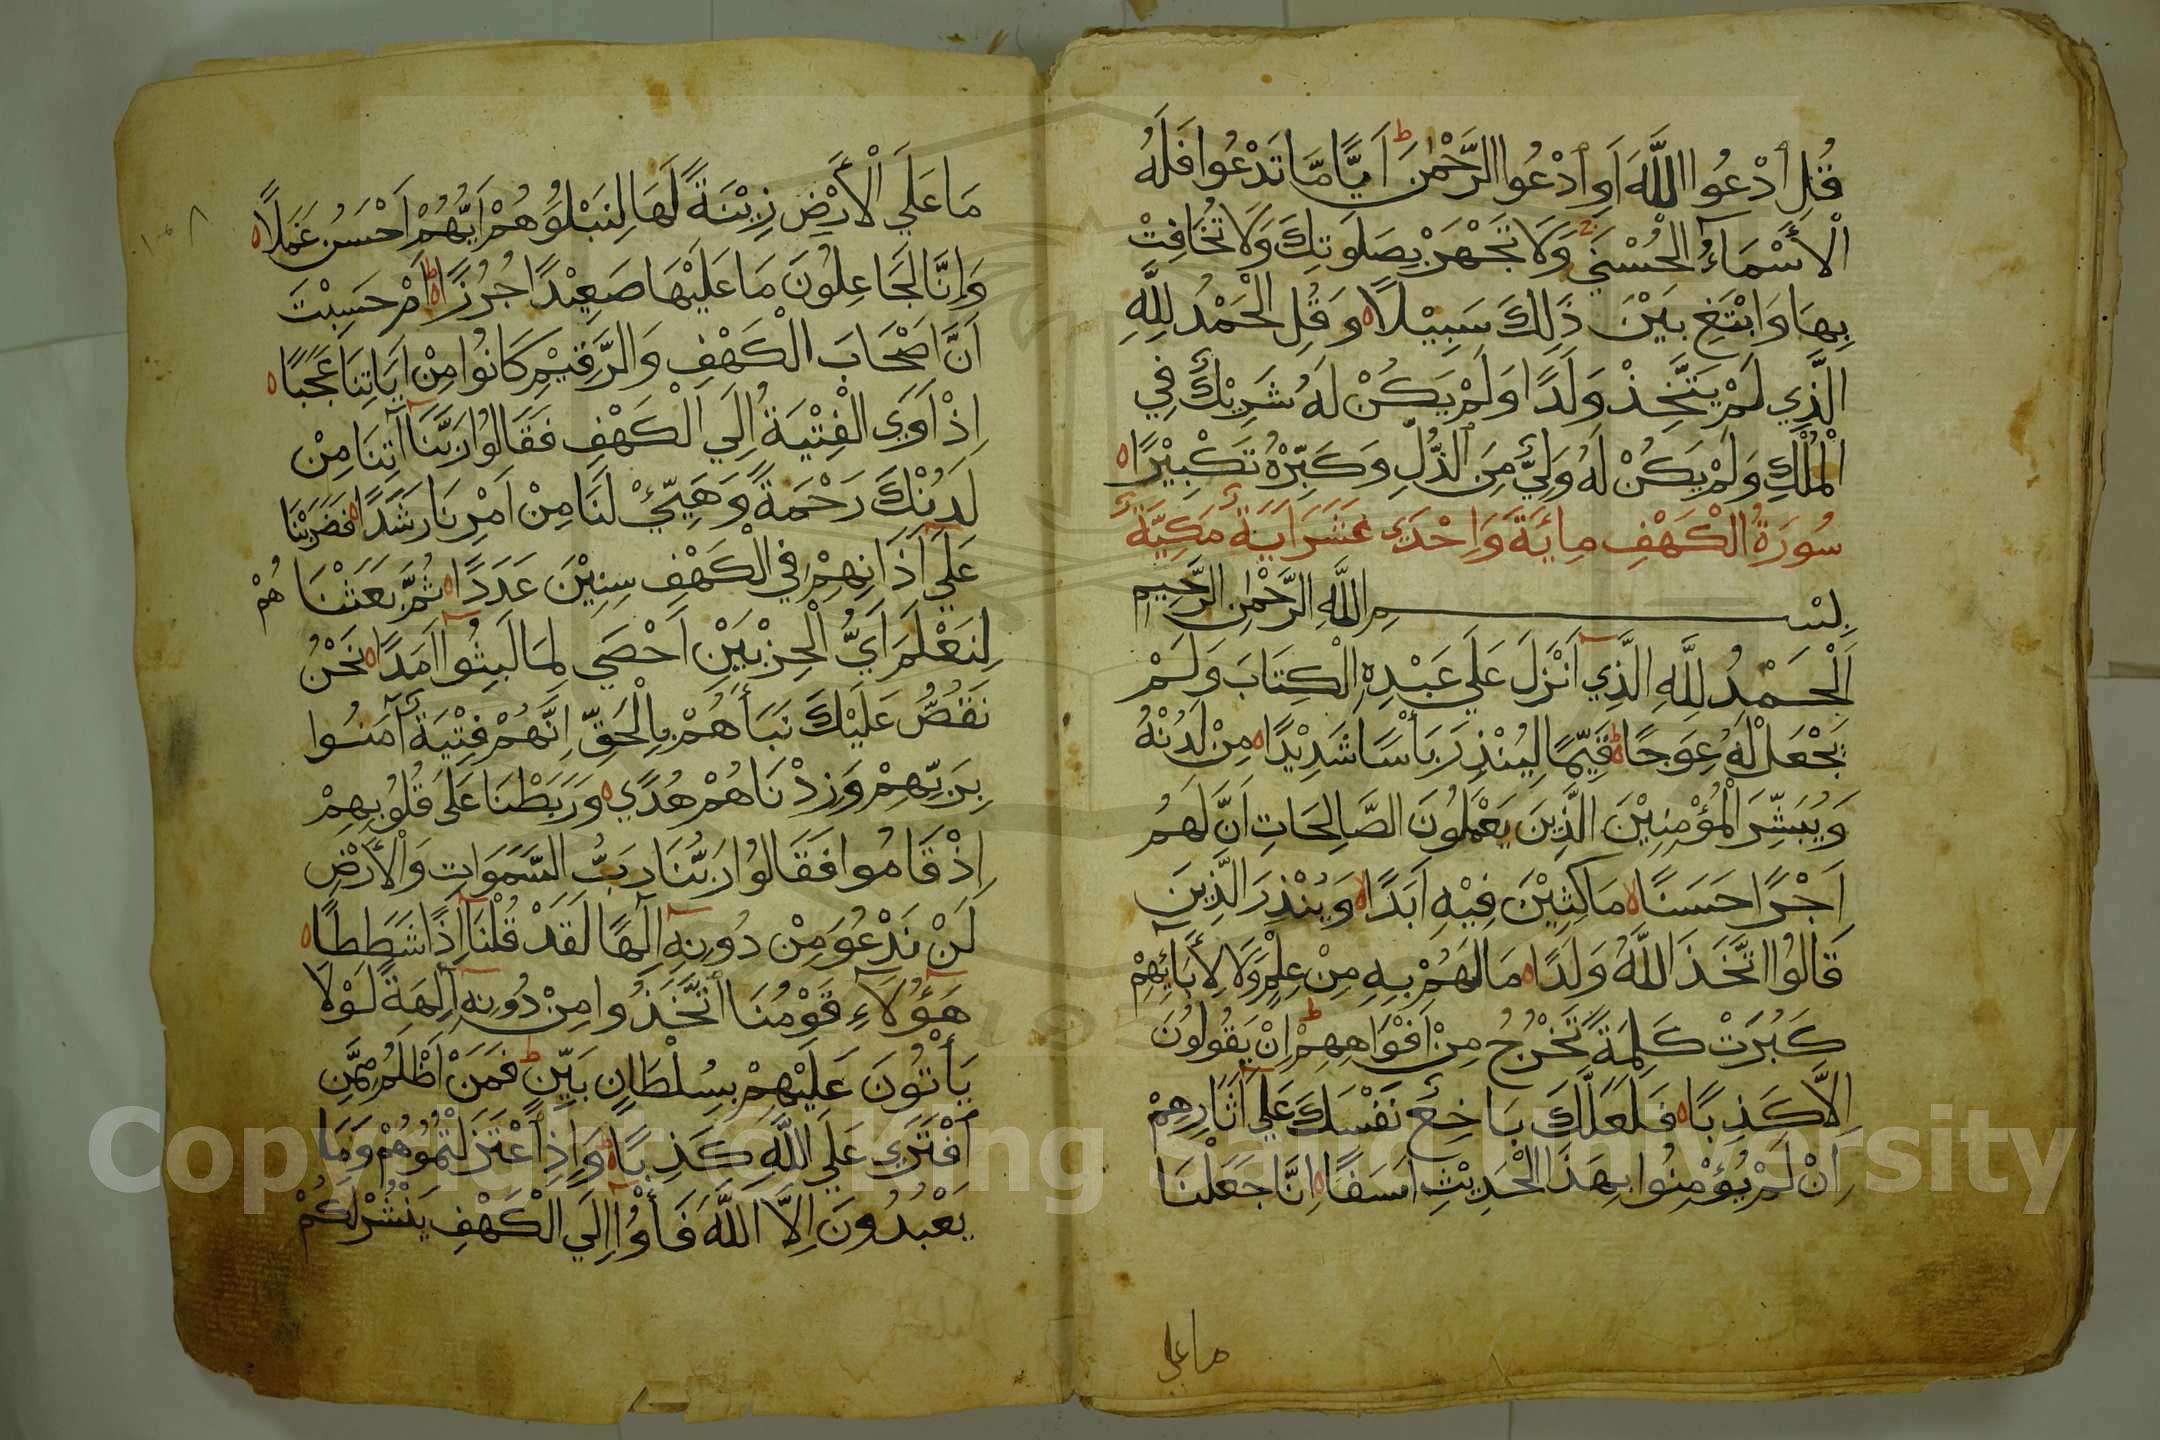 قُلِ ٱدْعُوا اللَّهَ اَوِ ٱدْعُوا الرَّحْمٰنَ اَيًّا مَّا تَدْعُوا فَلَهُ
الْأَسْمَآءُ الْحُسْنَي وَلَا تَجْهَرْ بِصَلَوتِكَ وَلَا تُخَافِتْ
بِهَا وَابْتَغِ بَيْنَ ذَلِكَ سَبِيْلًا ه وَقُلِ الْحَمْدُ لِلَّهِ
الَّذِي لَمْ يَتَّخِذْ وَلَدًا وَلَمْ يَكُنْ لَهُ شَرِيْكٌ فِي
الْمُلْكِ وَلَمْ يَكُنْ لَهُ وَلِيٌّ مِنَ الذُّلِّ وَكَبِّرْهُ تَكْبِيْرًا ه
سُورَةُ الْكَهْفِ مِائَةَ وَاِحْدَي عَشَرَ اَيَةً مَكِيَّةٌ
بِسْمِ اللَّهِ الرَّحْمٰنِ الرَّحِيمِ
اَلْحَمْدُ لِلَّهِ الَّذِي اَنْزَلَ عَلَي عَبْدِهِ الْكِتَابَ وَلَمْ
يَجْعَلْ لَهُ عِوَجًا ه قَيِّمًا لِيُنْذِرَ بَأْسًا شَدِيْدًا ه مِنْ لَدُنْهُ
وَيُبَشِّرَ الْمُؤْمِنِيْنَ الَّذِينَ يَعْمَلُونَ الصَّالِحَاتِ اَنَّ لَهُم
اَجْرًا حَسَنًا ه مَاكِثِيْنَ فِيْهِ اَبَدًا ه وَيُنْذِرَ الَّذِينَ
قَالُوا اتَّخَذَ اللَّهُ وَلَدًا ه مَا لَهُمْ بِهِ مِنْ عِلْمٍ وَلَا لِأَبَائِهِمْ
كَبُرَتْ كَلِمَةً تَخْرُجُ مِنْ اَفْوَاهِهِمْ اِنْ يَقُولُونَ
اِلَّا كَذِبًا ه فَلَعَلَّكَ بَاخِعٌ نَفْسَكَ عَلَي اَثَارِهِمْ
اِنْ لَمْ يُؤْمِنُوا بِهَذَا الْحَدِيْثِ اَسَفًا ه اِنَّا جَعَلْنَا
ما علي
مَا عَلَي الْأَرْضِ زِيْنَةً لَهَا لِنَبْلُوَهُمْ اَيُّهُمْ اَحْسَنُ عَمَلًا ه
وَاِنَّا لَجَاعِلُونَ مَا عَلَيْهَا صَعِيْدًا جُرُزًا ه اَمْ حَسِبْتَ
اَنَّ اَصْحَابَ الْكَهْفِ وَالرَّقِيْمِ كَانُوا مِنْ اَيَاتِنَا عَجَبًا ه
اِذْ اَوَي الْفِتْيَةُ اِلَي الْكَهْفِ فَقَالُوا رَبَّنَا آتِنَا مِنْ
لَدُنْكَ رَحْمَةً وَهَيِّئْ لَنَا مِنْ اَمْرِنَا رَشَدًا ه فَضَرَبْنَا
عَلَي اَذَانِهِمْ فِي الْكَهْفِ سِنِيْنَ عَدَدًا ه ثُمَّ بَعَثْنَاهُمْ
لِنَعْلَمَ اَيُّ الْحِزْبَيْنِ اَحْصَي لِمَا لَبِثُوا اَمَدًا ه نَحْنُ
نَقُصُّ عَلَيْكَ نَبَأَهُمْ بِالْحَقِّ اِنَّهُمْ فِتْيَةٌ آمَنُوا
بِرَبِّهِمْ وَزِدْنَاهُمْ هُدًي ه وَرَبَطْنَا عَلَى قُلُوبِهِمْ
اِذْ قَامُوا فَقَالُوا رَبُّنَا رَبُّ السَّمَوَاتِ وَالْأَرْضِ
لَنْ نَدْعُوَ مِنْ دُونِهِ اِلَهًا لَقَدْ قُلْنَا اِذًا شَطَطًا ه
هَؤُلَآءِ قَوْمُنَا اتَّخَذُوا مِنْ دُونِهِ آلِهَةً لَوْلَا
يَأْتُونَ عَلَيْهِمْ بِسُلْطَانٍ بَيِّنٍ فَمَنْ اَظْلَمُ مِمَّنِ
افْتَرَي عَلَي اللَّهِ كَذِبًا ه وَاِذِ اعْتَزَلْتُمُوُهُمْ وَمَا
يَعْبُدُونَ اِلَّا اللَّهَ فَأْوُا اِلَي الْكَهْفِ يَنْشُرْ لَكُمْ
Copyright © King Saud University